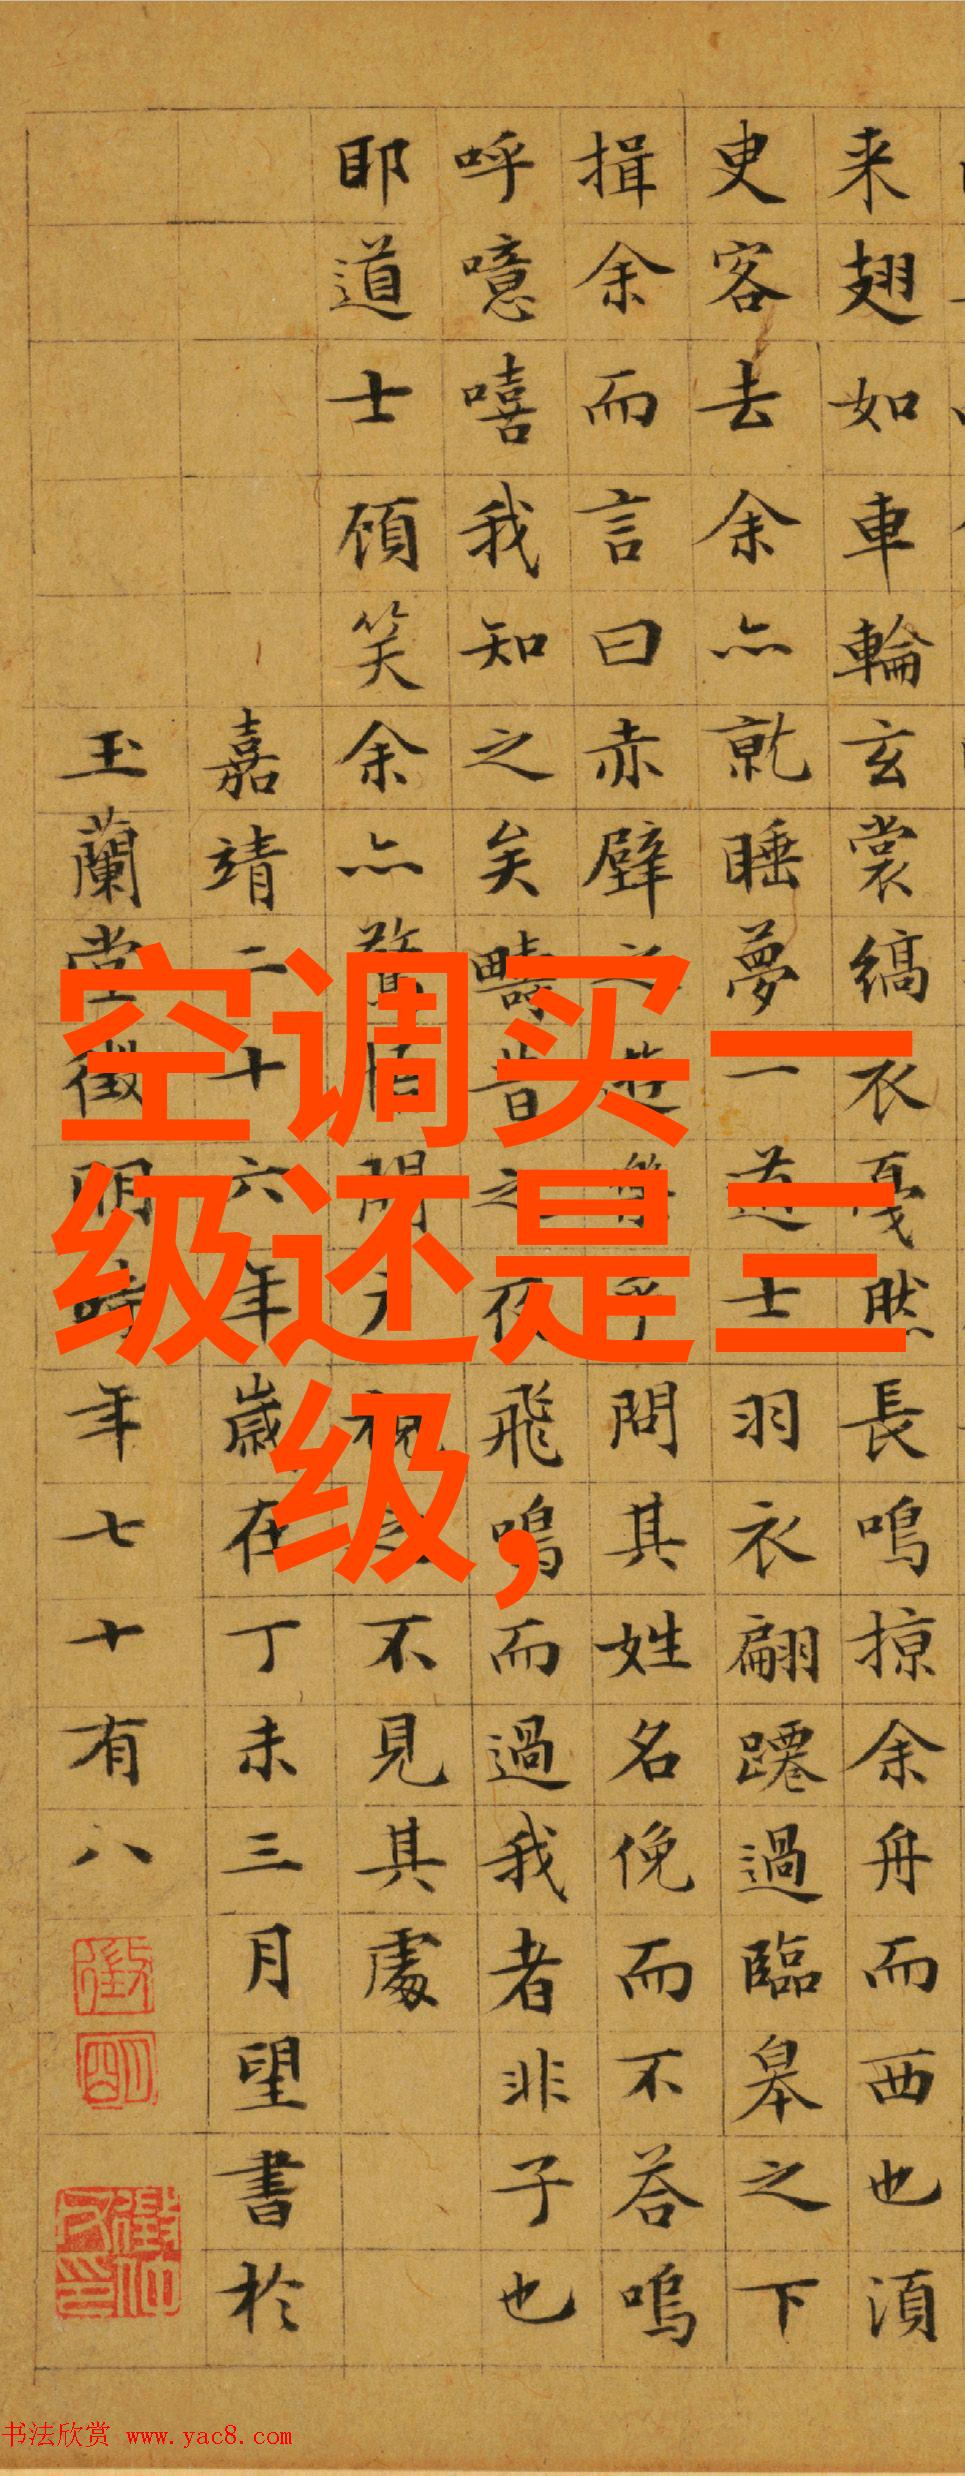 来翅如車輪玄裳縞衣戛然長鳴掠余舟而西也湏
臾客去余亦就睡夢一道士羽衣翩躚過臨皋之下
揖余而言曰赤壁之遊樂乎問其姓名俛而不荅嗚
呼噫嘻我知之矣疇昔之夜飛鳴而過我者非子也
耶道士顧笑余亦驚悟開戶視之不見其處
嘉靖二十六年歲在丁未三月望書於
玉蘭堂徵明時年七十有八
徵
明
空调买一
级还是三
级,
书法欣赏 www.yac8.com